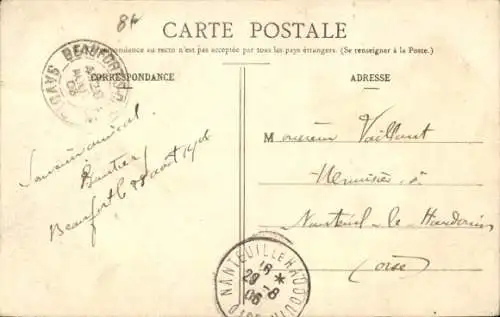 84
CARTE POSTALE
La Correspondance au recto n'est pas acceptée par tous les pays étrangers. (Se renseigner à la Poste.)
CORRESPONDANCE
ADRESSE
BEAUFORT
SAVOIE
06
Monsieur Vaillant
Menuisier à
Nanteuil-le Haudouin
(Oise)
Souvenir amical
Beaufort le 28 août 1906
NANTEUIL LE HAUDOUIN
16 *
29 -8
06